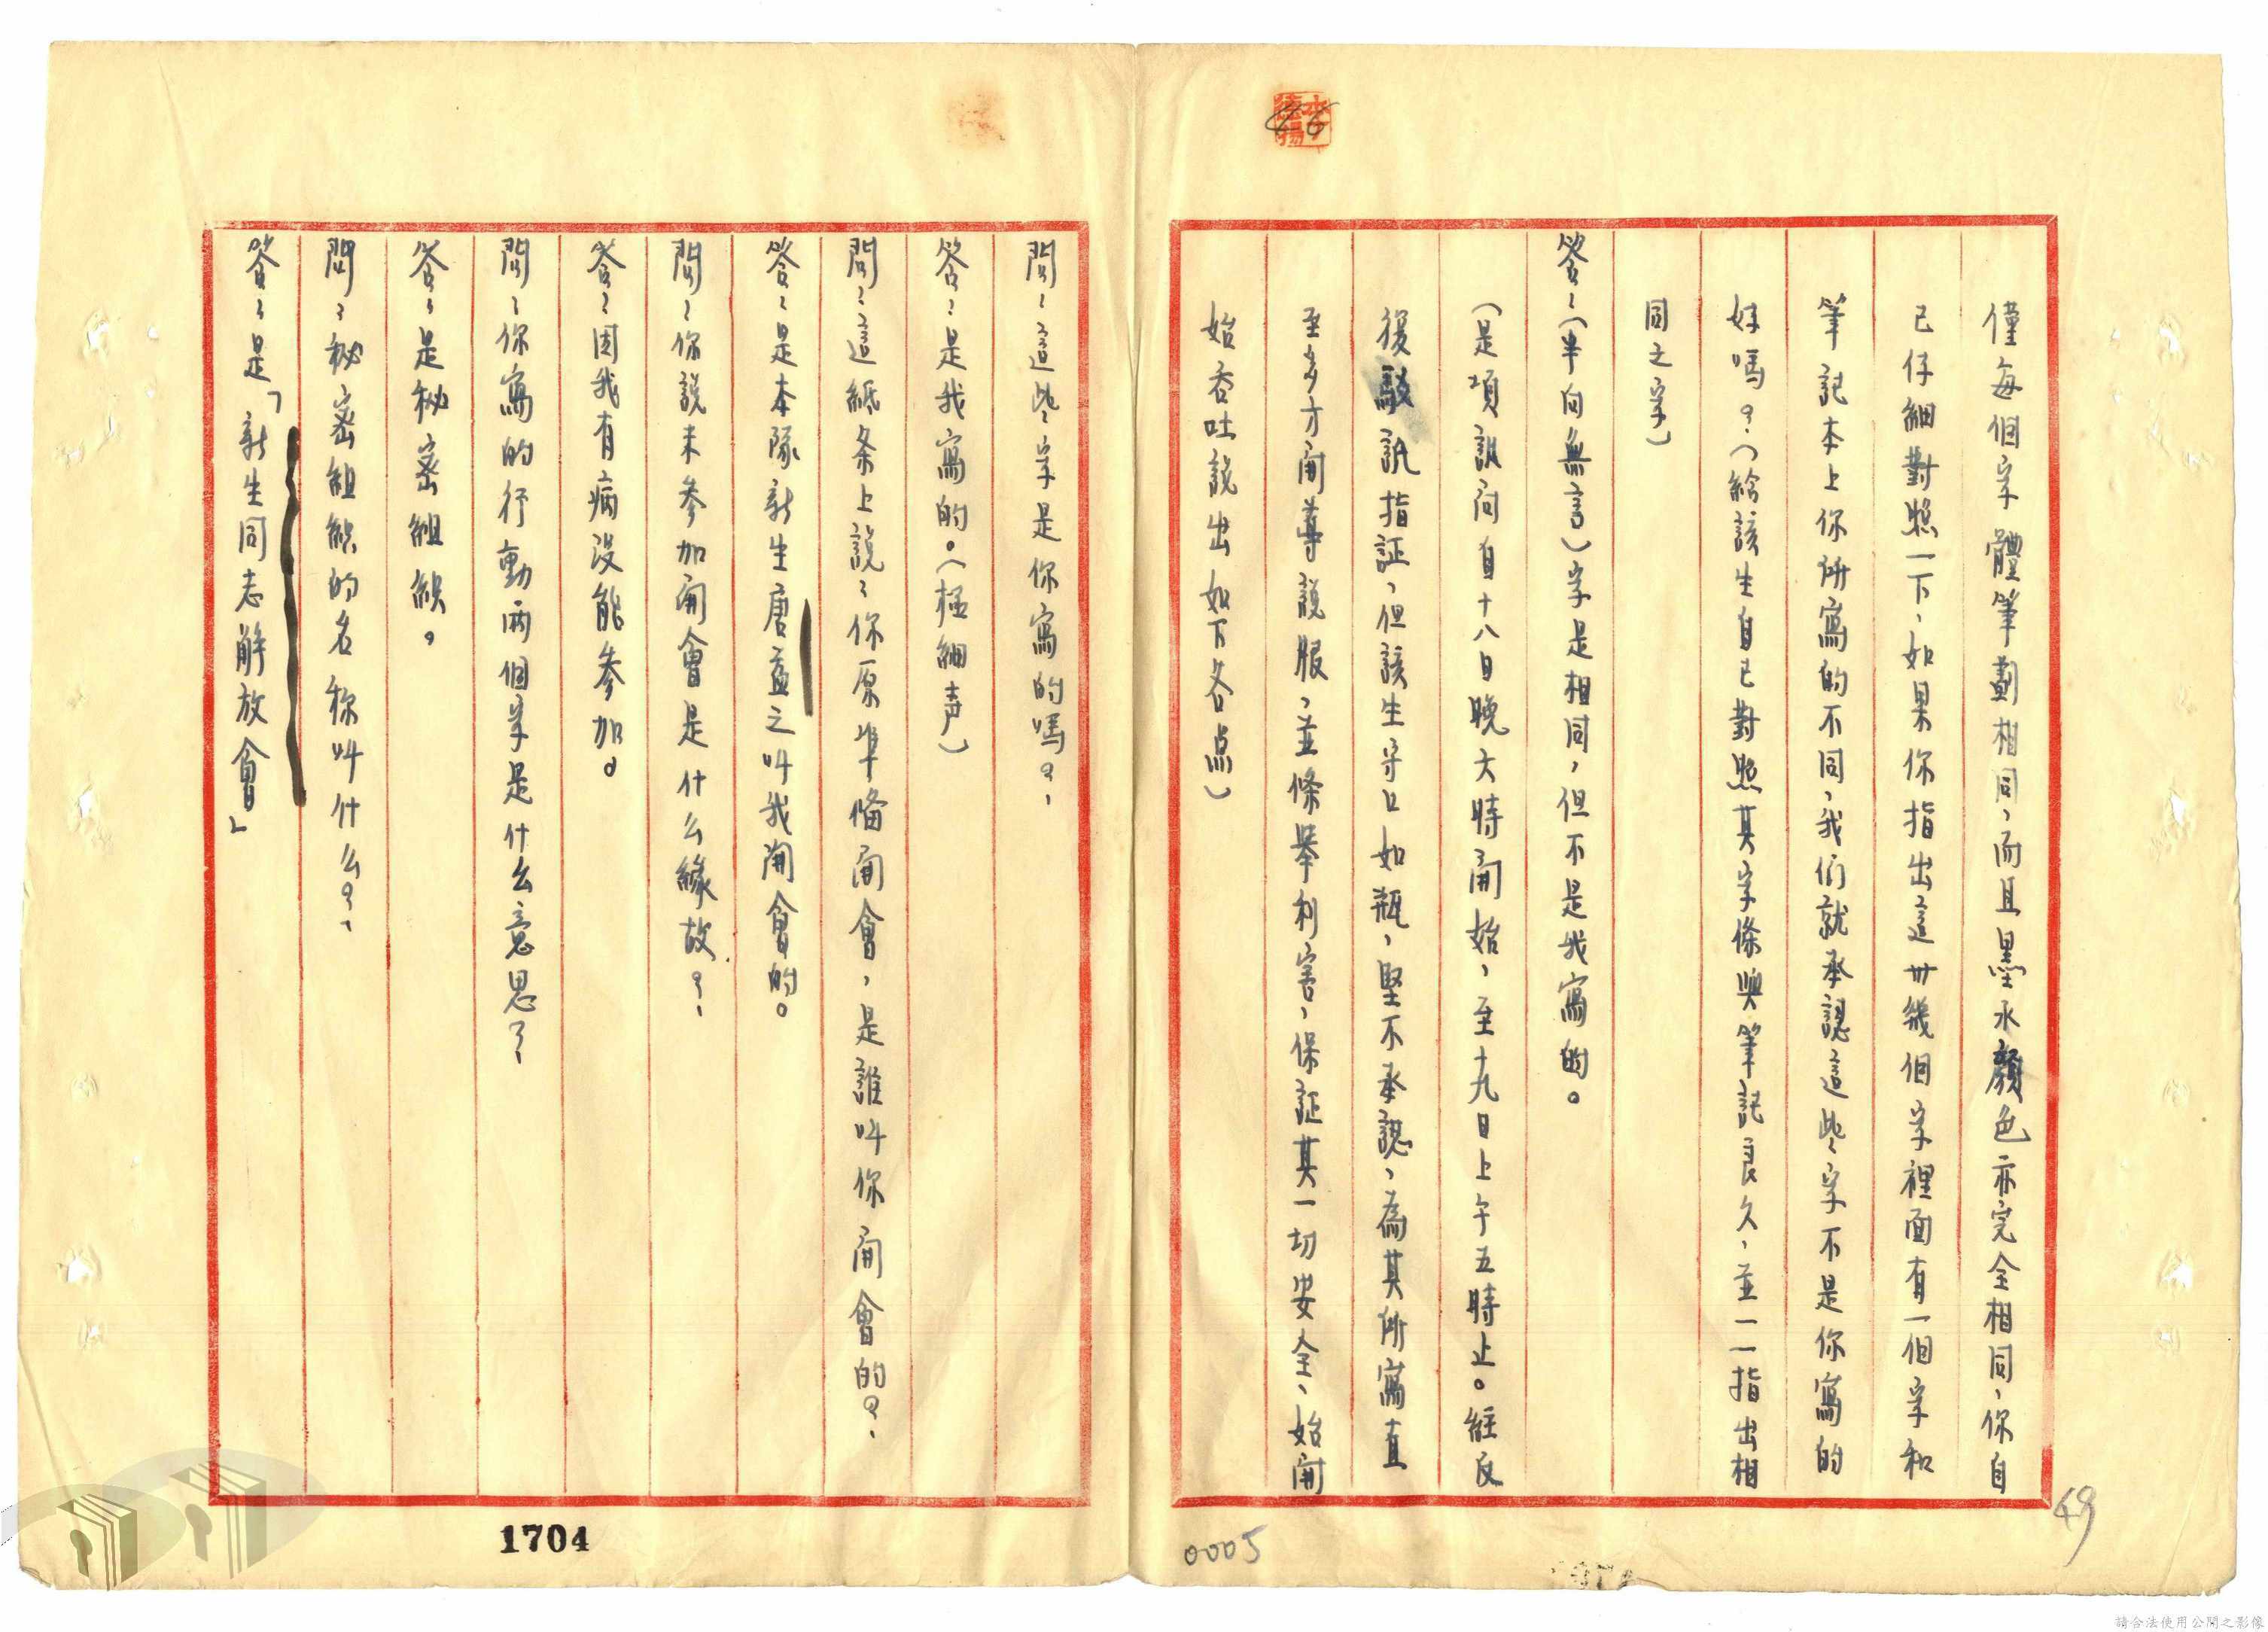 僅每個字體筆劃相同，而且墨水顏色亦完全相同，你自
已仔細對照一下，如果你指出這卅幾個字裡面有一個字和
筆記本上你所寫的不同，我们就承認這些字不是你寫的
好嗎？（給該生自已對照其字條與筆記良久，並一一指出相
同之字）
答：（半向無言）字是相同，但不是我寫的。
（是項訊问自十八日晚六時開始，至十九日上午五時止。經反
復 訊指証，但該生守口如瓶，堅不承認，為其所寫直
至多方開導説服，並條舉利害，保証其一切安全，始開
始吞吐説出如下各点）
問：這些字是你寫的嗎？
答：是我寫的。（極細声）
問：這紙条上說：你原準偹開會，是誰叫你開會的？
答：是本隊新生唐益之叫我開會的。
問：你說未參加開會是什么緣故？
答：因我有病没能參加。
問：你寫的行動两個字是什么意思？
答：是秘密組織。
問：秘密組織的名称叫什么？
答：是「新生同志解放會」
1704
0005
49
46
請合法使用公開之影像